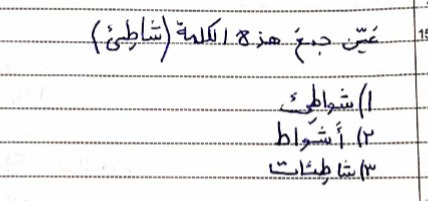 عَيِّن جمعَ هذه الكلمة (شاطِئ)
١) شواطِئ
٢) أَشواط
٣) شاطِئات